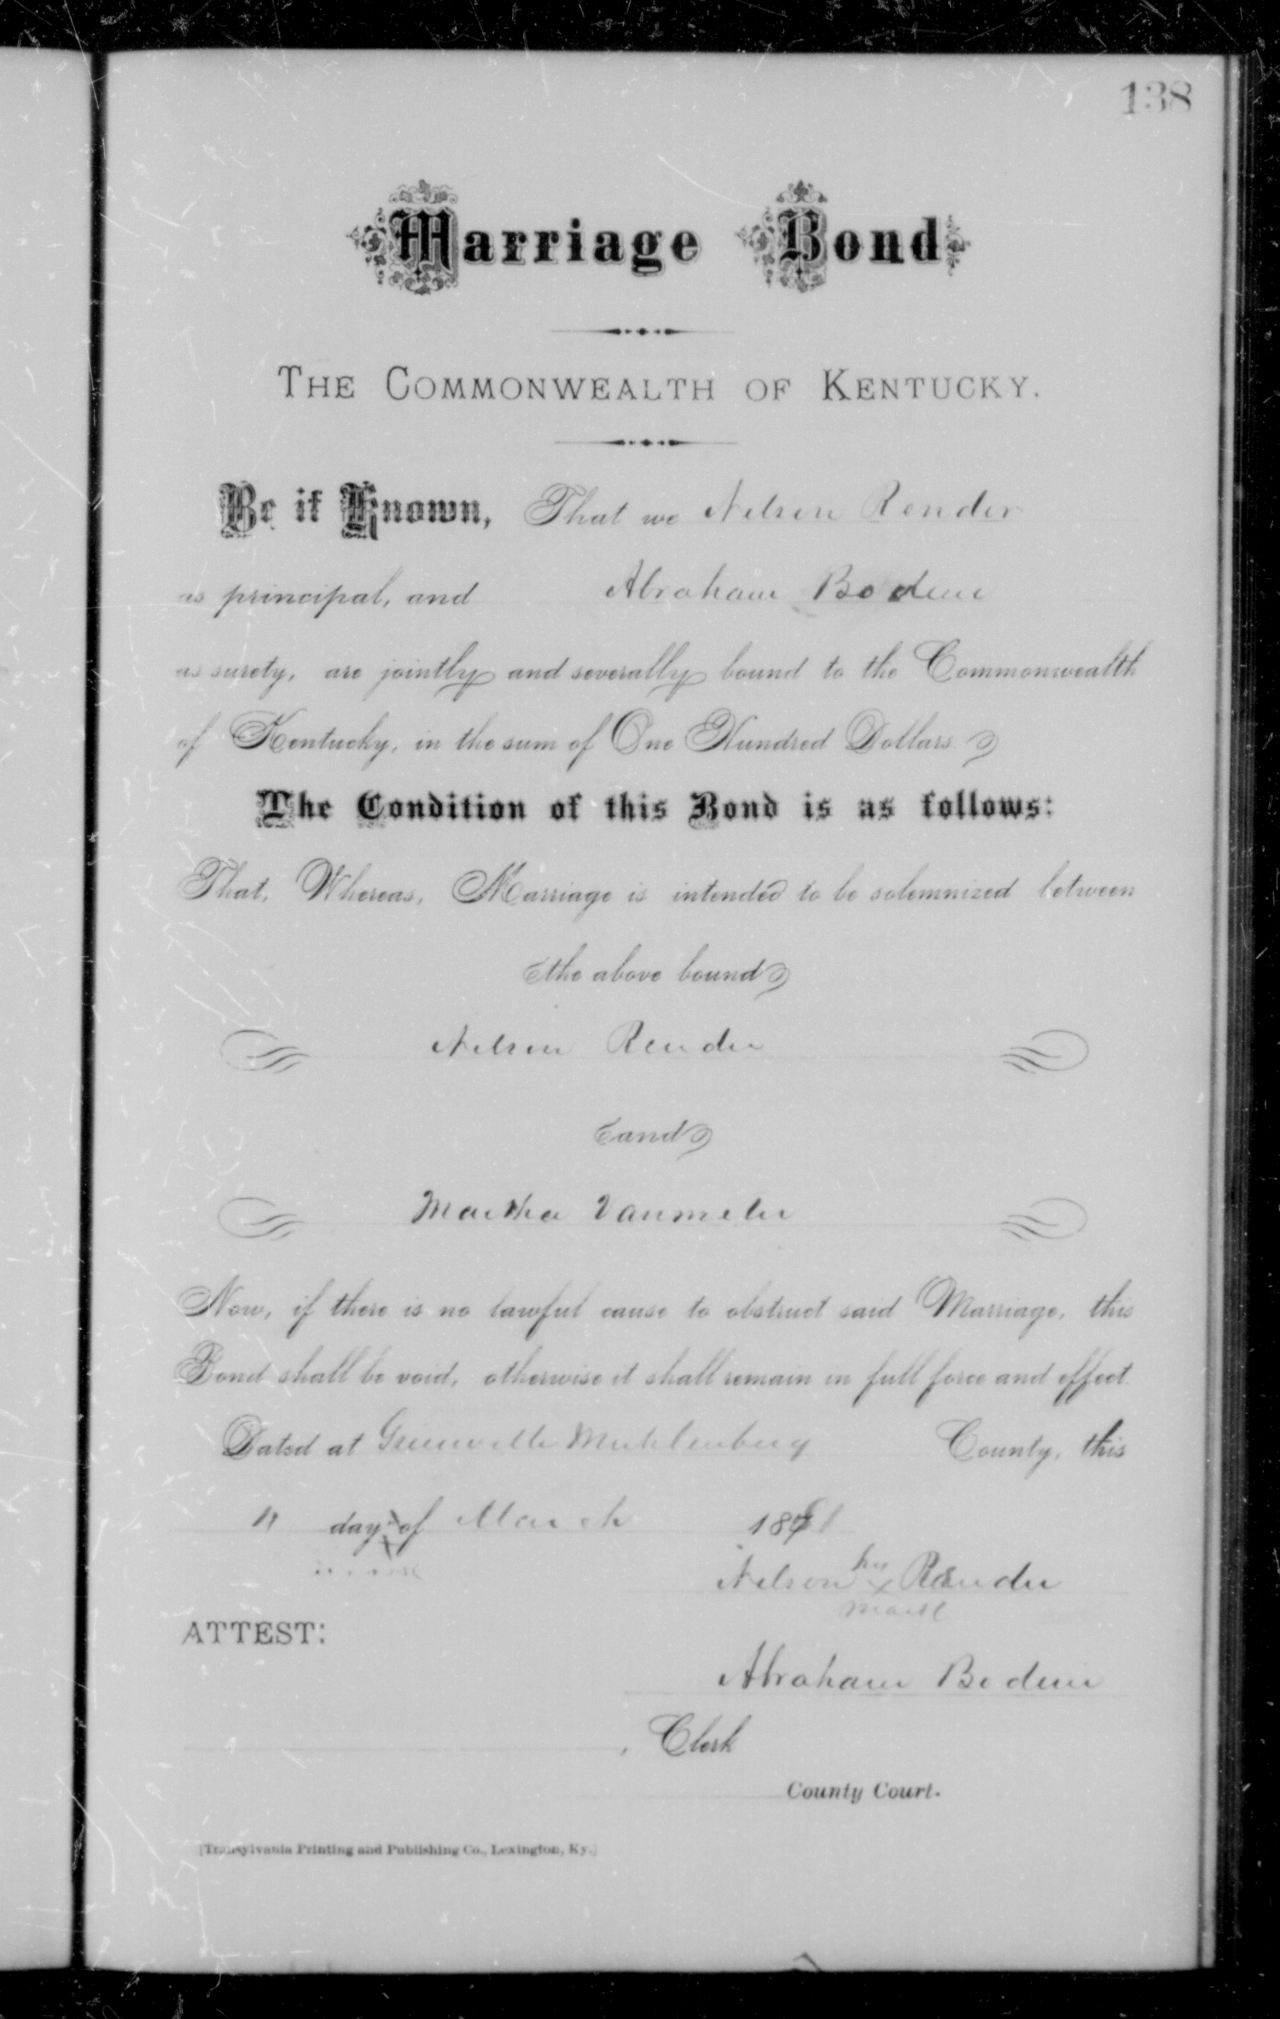 138
Marriage Bond.
THE COMMONWEALTH OF KENTUCKY.
Be it Known, That we Nelson Render
as principal, and Abraham Bodine
as surety, are jointly and severally bound to the Commonwealth
of Kentucky, in the sum of One Hundred Dollars.
The Condition of this Bond is as follows:
That, Whereas, Marriage is intended to be solemnized between
the above bound
Nelson Render
and
Martha Vanmeter
Now, if there is no lawful cause to obstruct said Marriage, this
Bond shall be void, otherwise it shall remain in full force and effect.
Dated at Greenville Muhlenberg County, this
day of March
Nelson his x Render
mark
ATTEST:
Abraham Bodine
, Clerk
County Court.
[Transylvania Printing and Publishing Co., Lexington, Ky.]